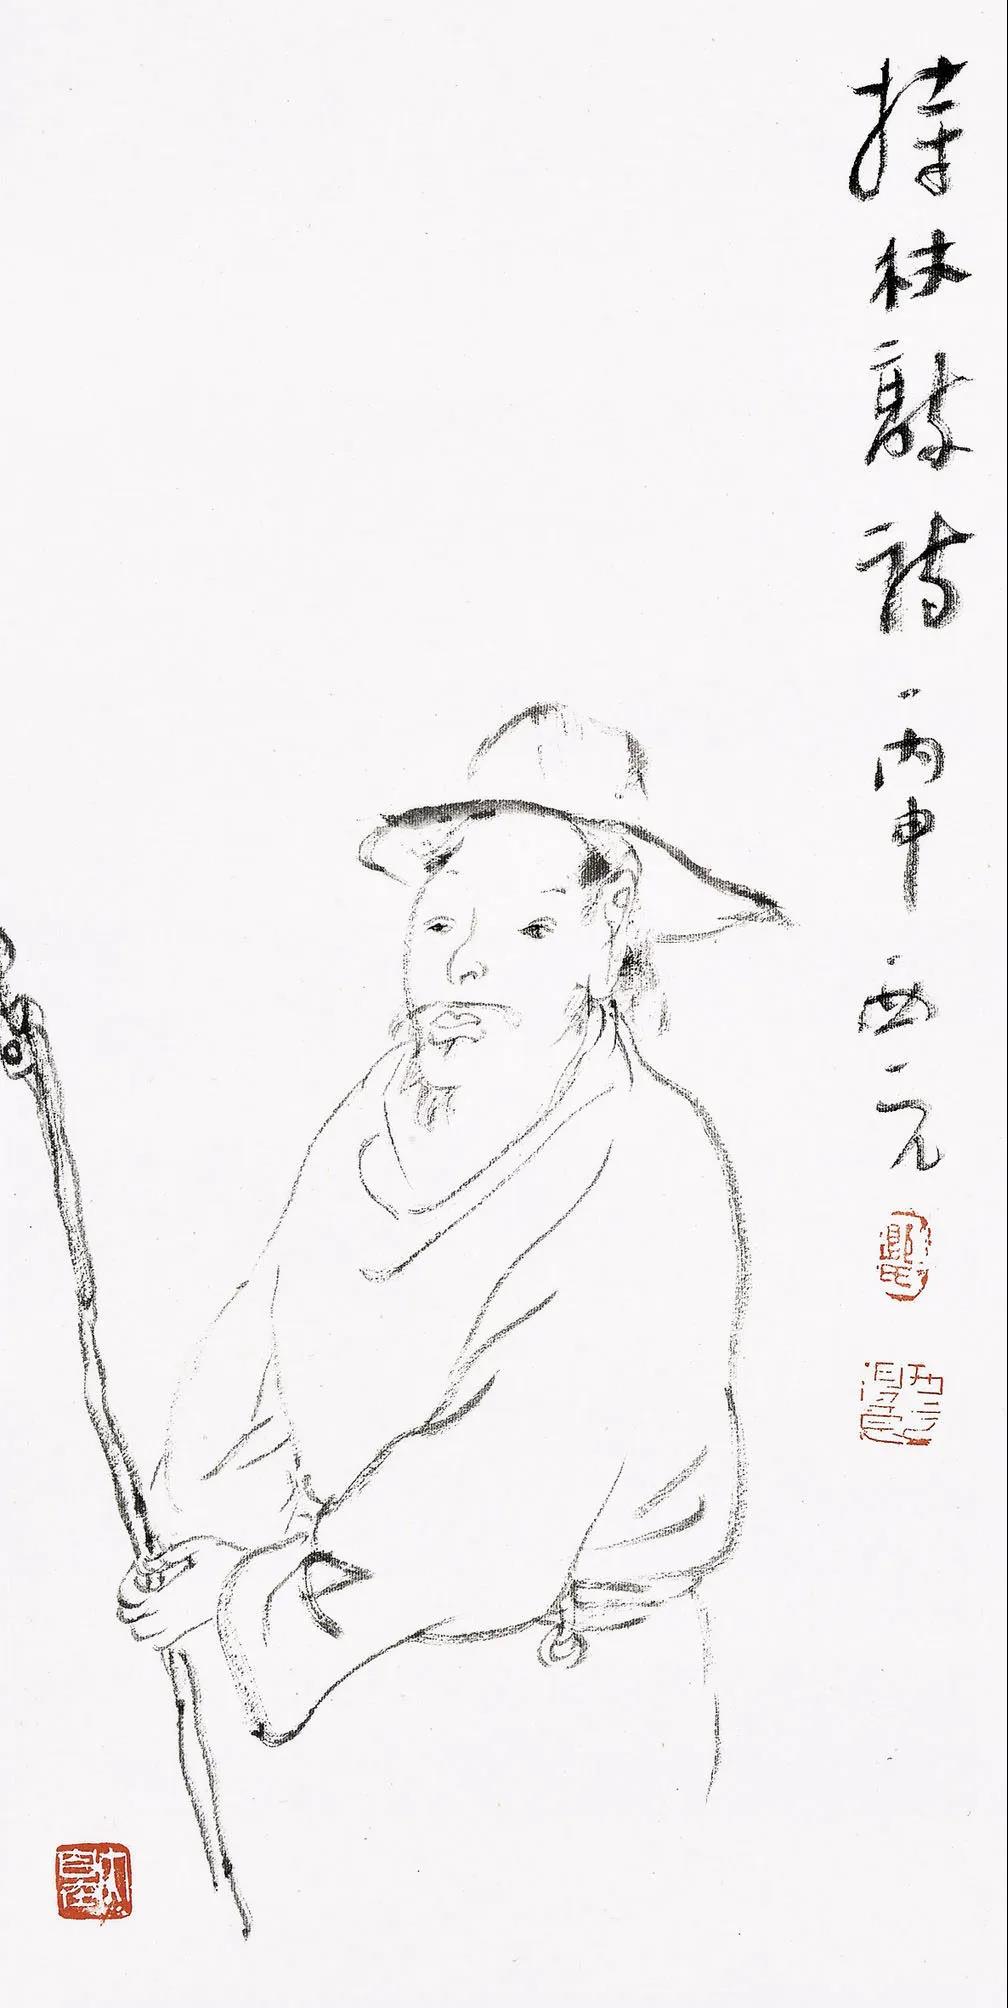 持杖敲诗
丙申
西元